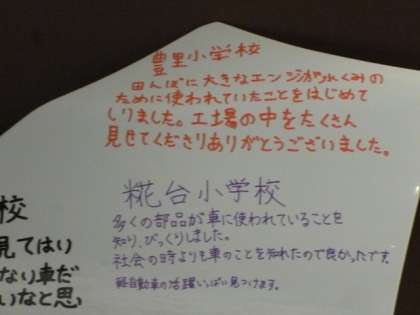 豊里小学校
田んぼに大きなエンジンが水くみの
ために使われていたことをはじめて
しりました。工場の中をたくさん
見せてくださりありがとうございました。
糀台小学校
多くの部品が車に使われていることを
知り、びっくりしました。
社会の時よりも車のことを知れたので良かったです。
軽自動車の活躍いっぱい見つけます。
校
見てはい
ない車だ
いなと思